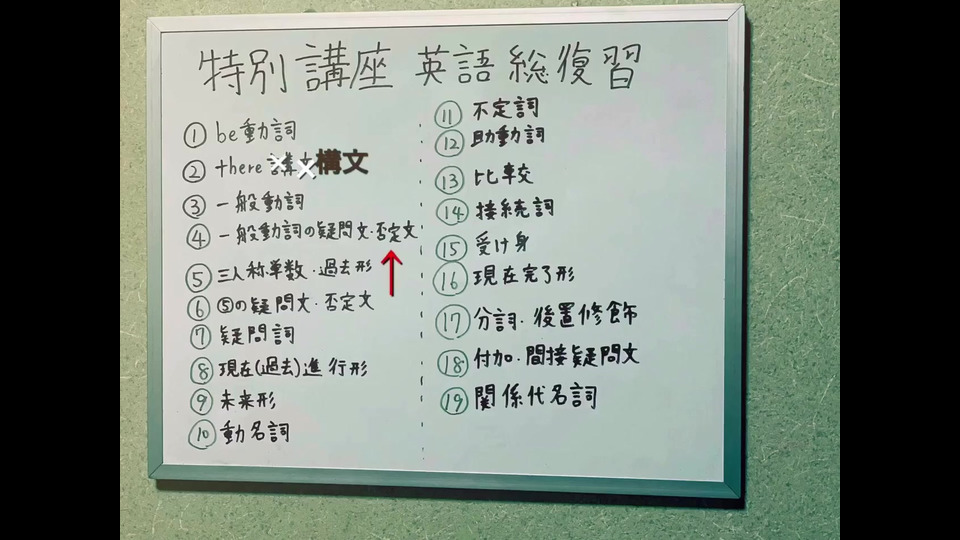 特別講座 英語総復習
① be動詞
② there 講文 構文
③ 一般動詞
④ 一般動詞の疑問文・否定文
⑤ 三人称単数・過去形
⑥ ⑤の疑問文・否定文
⑦ 疑問詞
⑧ 現在(過去)進行形
⑨ 未来形
⑩ 動名詞
⑪ 不定詞
⑫ 助動詞
⑬ 比較
⑭ 接続詞
⑮ 受け身
⑯ 現在完了形
⑰ 分詞・後置修飾
⑱ 付加・間接疑問文
⑲ 関係代名詞